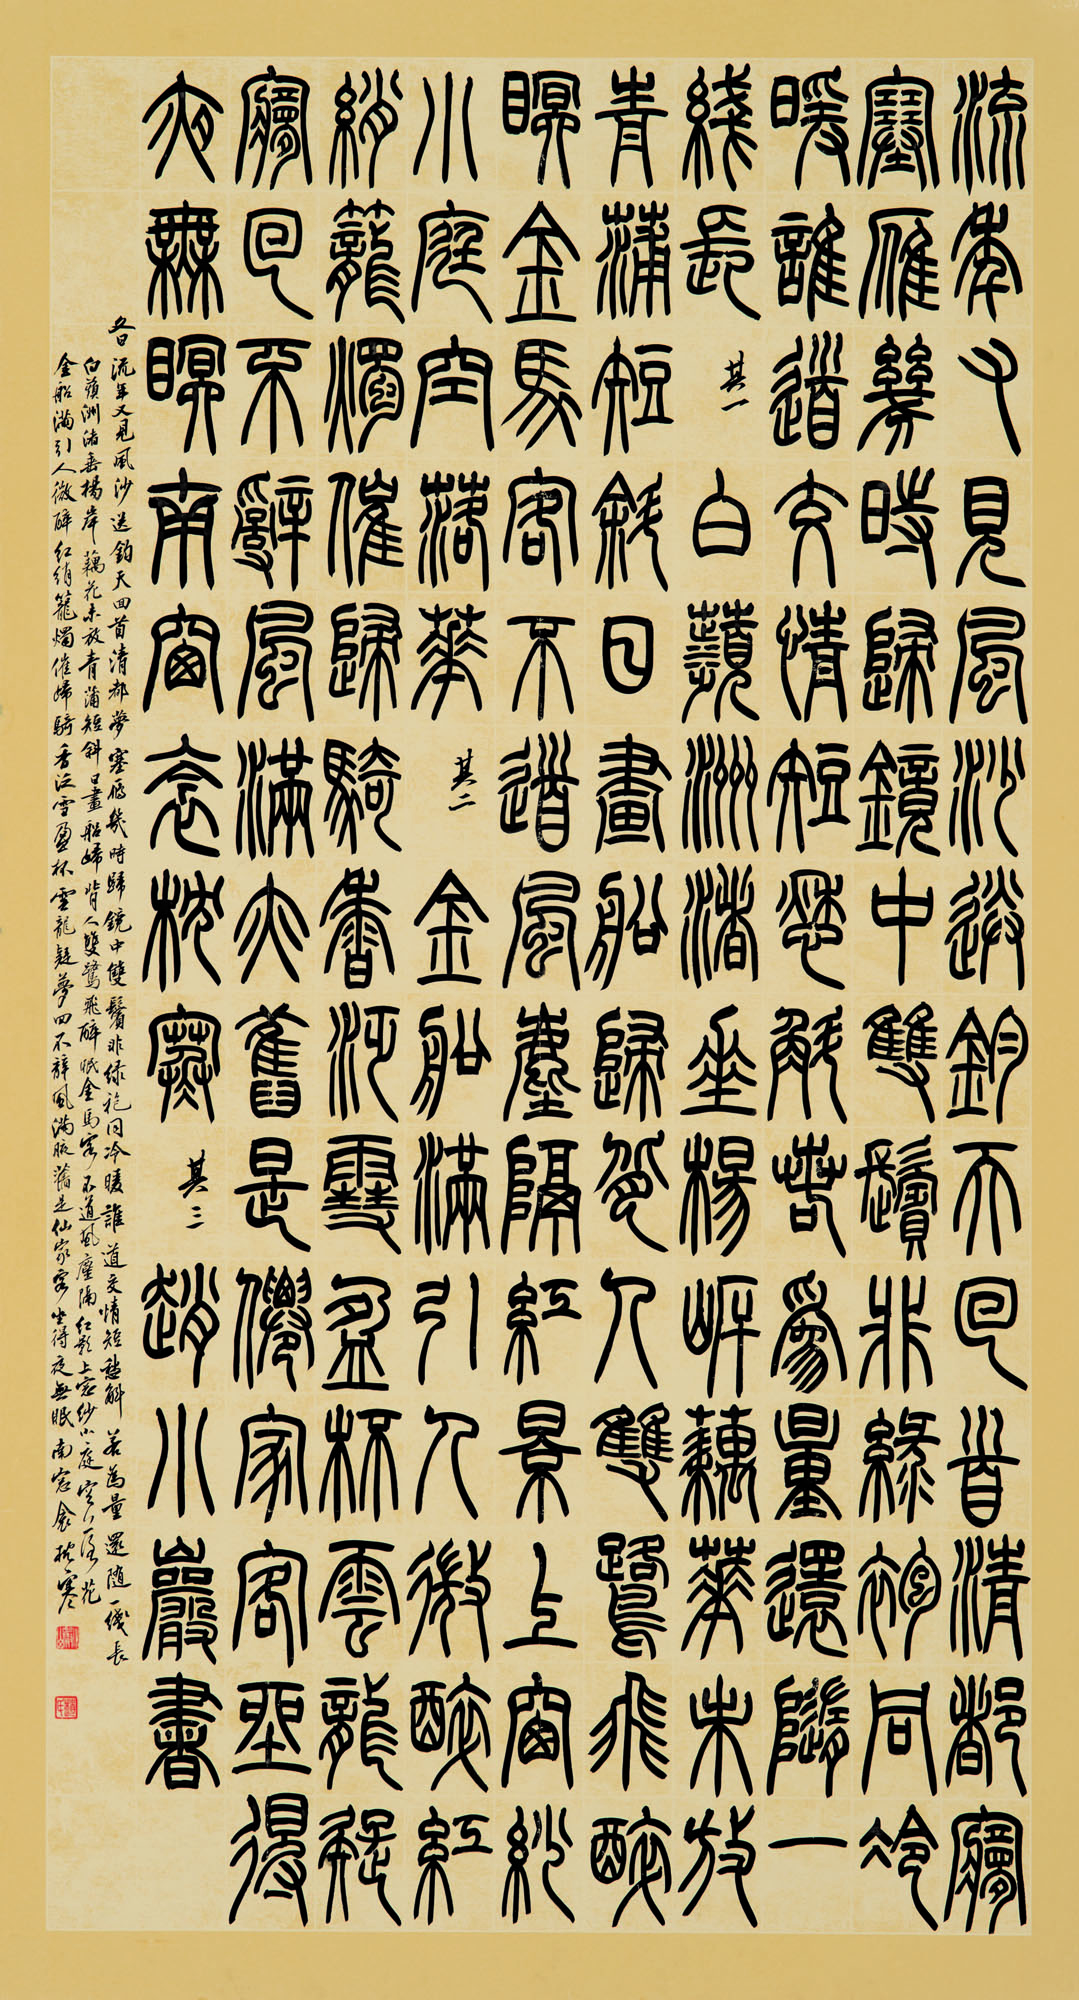 流年又見風沙送鈞天回首清都夢
塞雁幾時歸鏡中雙鬢非綠袍同冷
暖誰道交情短愁斛若為量還隨一
綫長 其一 白蘋洲渚垂楊岸藕華未放
青蒲短斜日畫船歸背人雙鷺飛醉
眠金馬客不道風塵隔紅景上窗紗
小庭空落華 其二 金船滿引人微醉紅
綃籠燭催歸騎香泛雪盈杯雲龍疑
夢回不辭風滿亦舊是僊家客坐得
夜無眠南窗衾枕寒 其三 趙小巖書
冬日 流年又見風沙送鈞天回首清都夢塞雁幾時歸鏡中雙鬢非綠袍同冷暖誰道交情短愁斛若為量還隨一綫長
白蘋洲渚垂楊岸藕花未放青蒲短斜日畫船歸背人雙鷺飛醉眠金馬客不道風塵隔紅影上窗紗小庭空落花
金船滿引人微醉紅綃籠燭催歸騎香泛雪盈杯雲龍疑夢回不辭風滿腋舊是仙家客坐得夜無眠南窗衾枕寒